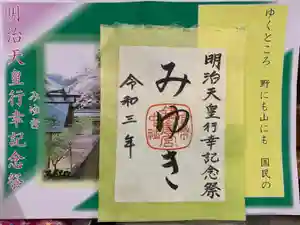 ゆくところ
野にも山にも
国民の
明治天皇行幸記念祭
みゆき
令和三年
明治天皇行幸記念祭
みゆき